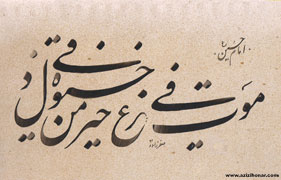 امام حسین
موت فی عز خیر من حیوة فی ذل
www.azizihonar.com